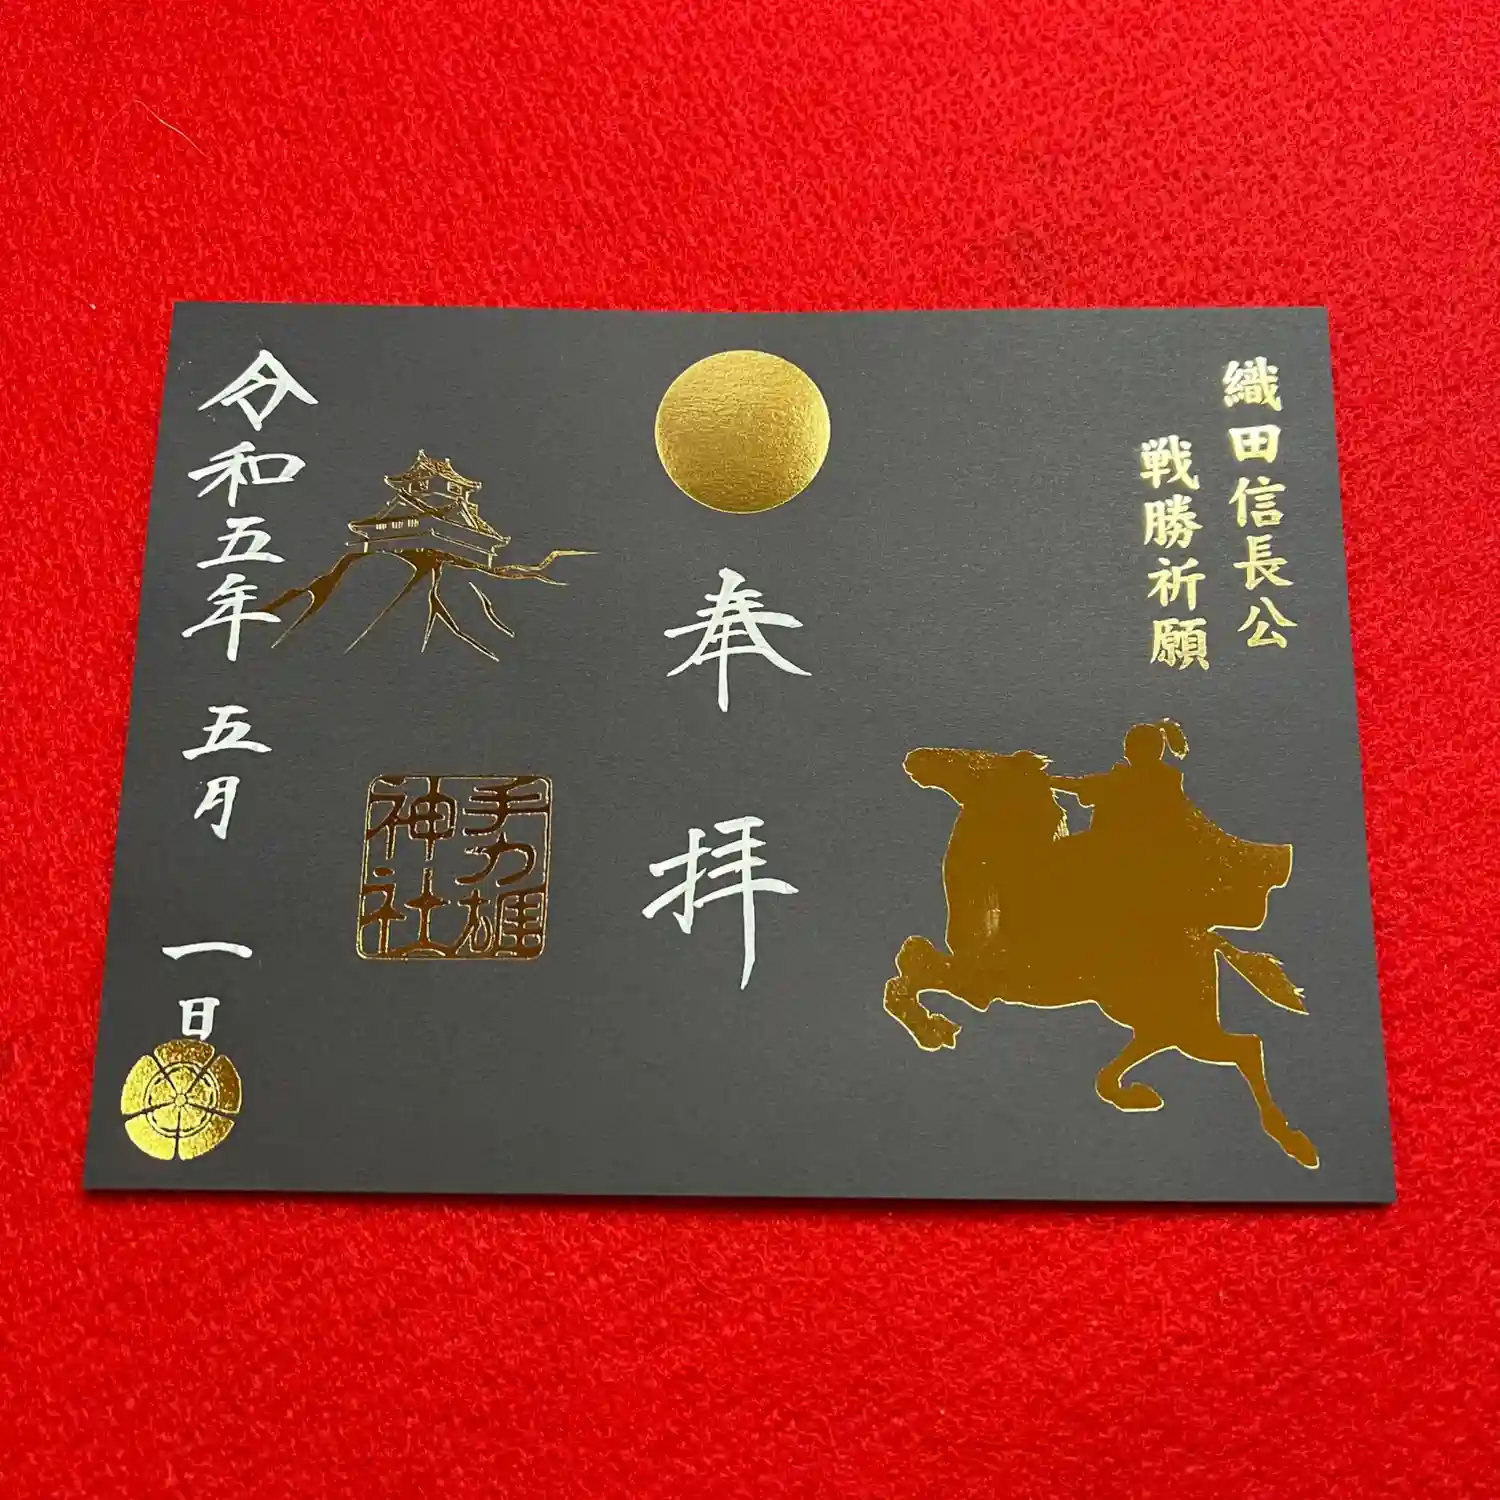 織田信長公
戦勝祈願
奉拝
手力雄
神社
令和五年 五月 一日